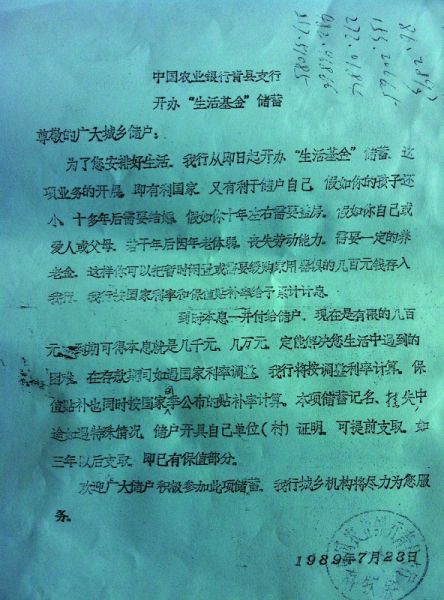 中国农业银行青县支行
开办“生活基金”储蓄
尊敬的广大城乡储户：
为了您安排好生活。我行从即日起开办“生活基金”储蓄。这
项业务的开展，即有利国家，又有利于储户自己，假如你的孩子还
小，十多年后需要结婚，假如你十年左右需要盖房，假如你自己或
爱人或父母，若干年后因年老体弱，丧失劳动能力，需要一定的养
老金，这样你可以把暂时闲置或需要缓购家用器俱的几百元钱存入
我行，我行按国家利率和保值贴补率给予累计计息。
到时本息一并付给储户。现在是有限的几百
元，到期可得本息就是几千元、几万元，定能解决您生活中遇到的
困难，在存款期间如遇国家利率调整，我行将按调整利率计算。保
值贴补也同时按国家季公布的贴补率计算。本项储蓄记名、挂失中
途如遇特殊情况，储户开具自己单位（村）证明，可提前支取，如
三年以后支取，即已有保值部分。
欢迎广大储户积极参加此项储蓄，我行城乡机构将尽力为您服
务。
1989年7月23日